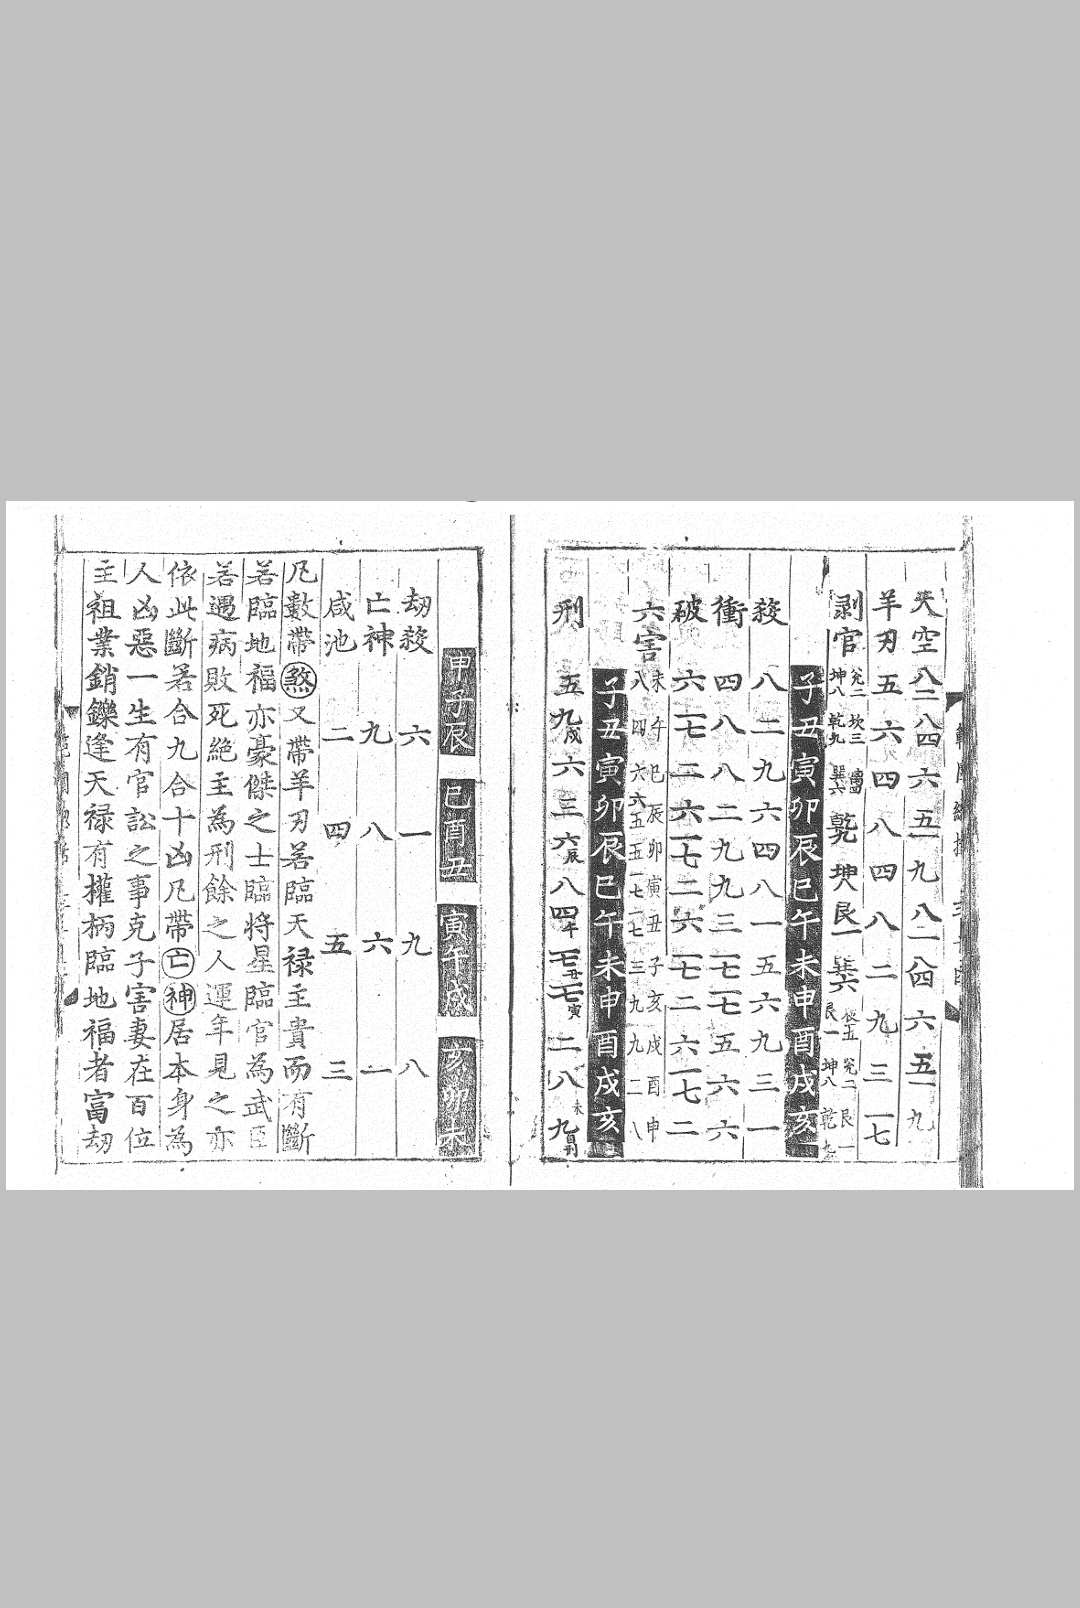 天空 八二 八四 六 五一 九 八二 八四 六 五一 九
羊刃 五 六 四 八 四 八 二 九 三 一七
剥官 坤八 兊二 乾九 坎三 巽六 乾 坤 艮一 巽六 艮一 坤八 兊二 乾九 艮一
子丑寅卯辰巳午未申酉戌亥
殺 八 二 九 六 四 八 一 五 六 九 三 一
衝 四 八 八 二 九 九 三 一七 一七 五 六 六
破 六 一七 二 六 一七 二 六 一七 二 六 一七 二
六害 未八 午四 巳六 辰六五 卯五 寅一七 丑二七 子三 亥九 戌九 酉二 申八
子丑寅卯辰巳午未申酉戌亥
刑 五 九戌 六 三 六辰 八 四午 一七丑 一七寅 二 八未 九自刑
申子辰 巳酉丑 寅午戌 亥卯未
劫殺 六 一 九 八
亡神 九 八 六 一
咸池 二 四 五 三
凡數帶煞又帶羊刃若臨天禄主貴而有斷
若臨地福亦豪傑之士臨將星臨官為武臣
若遇病敗死絶主為刑餘之人運年見之亦
依此斷若合九合十凶凡帶亡神居本身為
人凶惡一生有官訟之事克子害妻在百位
主祖業銷鑠逢天禄有權柄臨地福者富劫